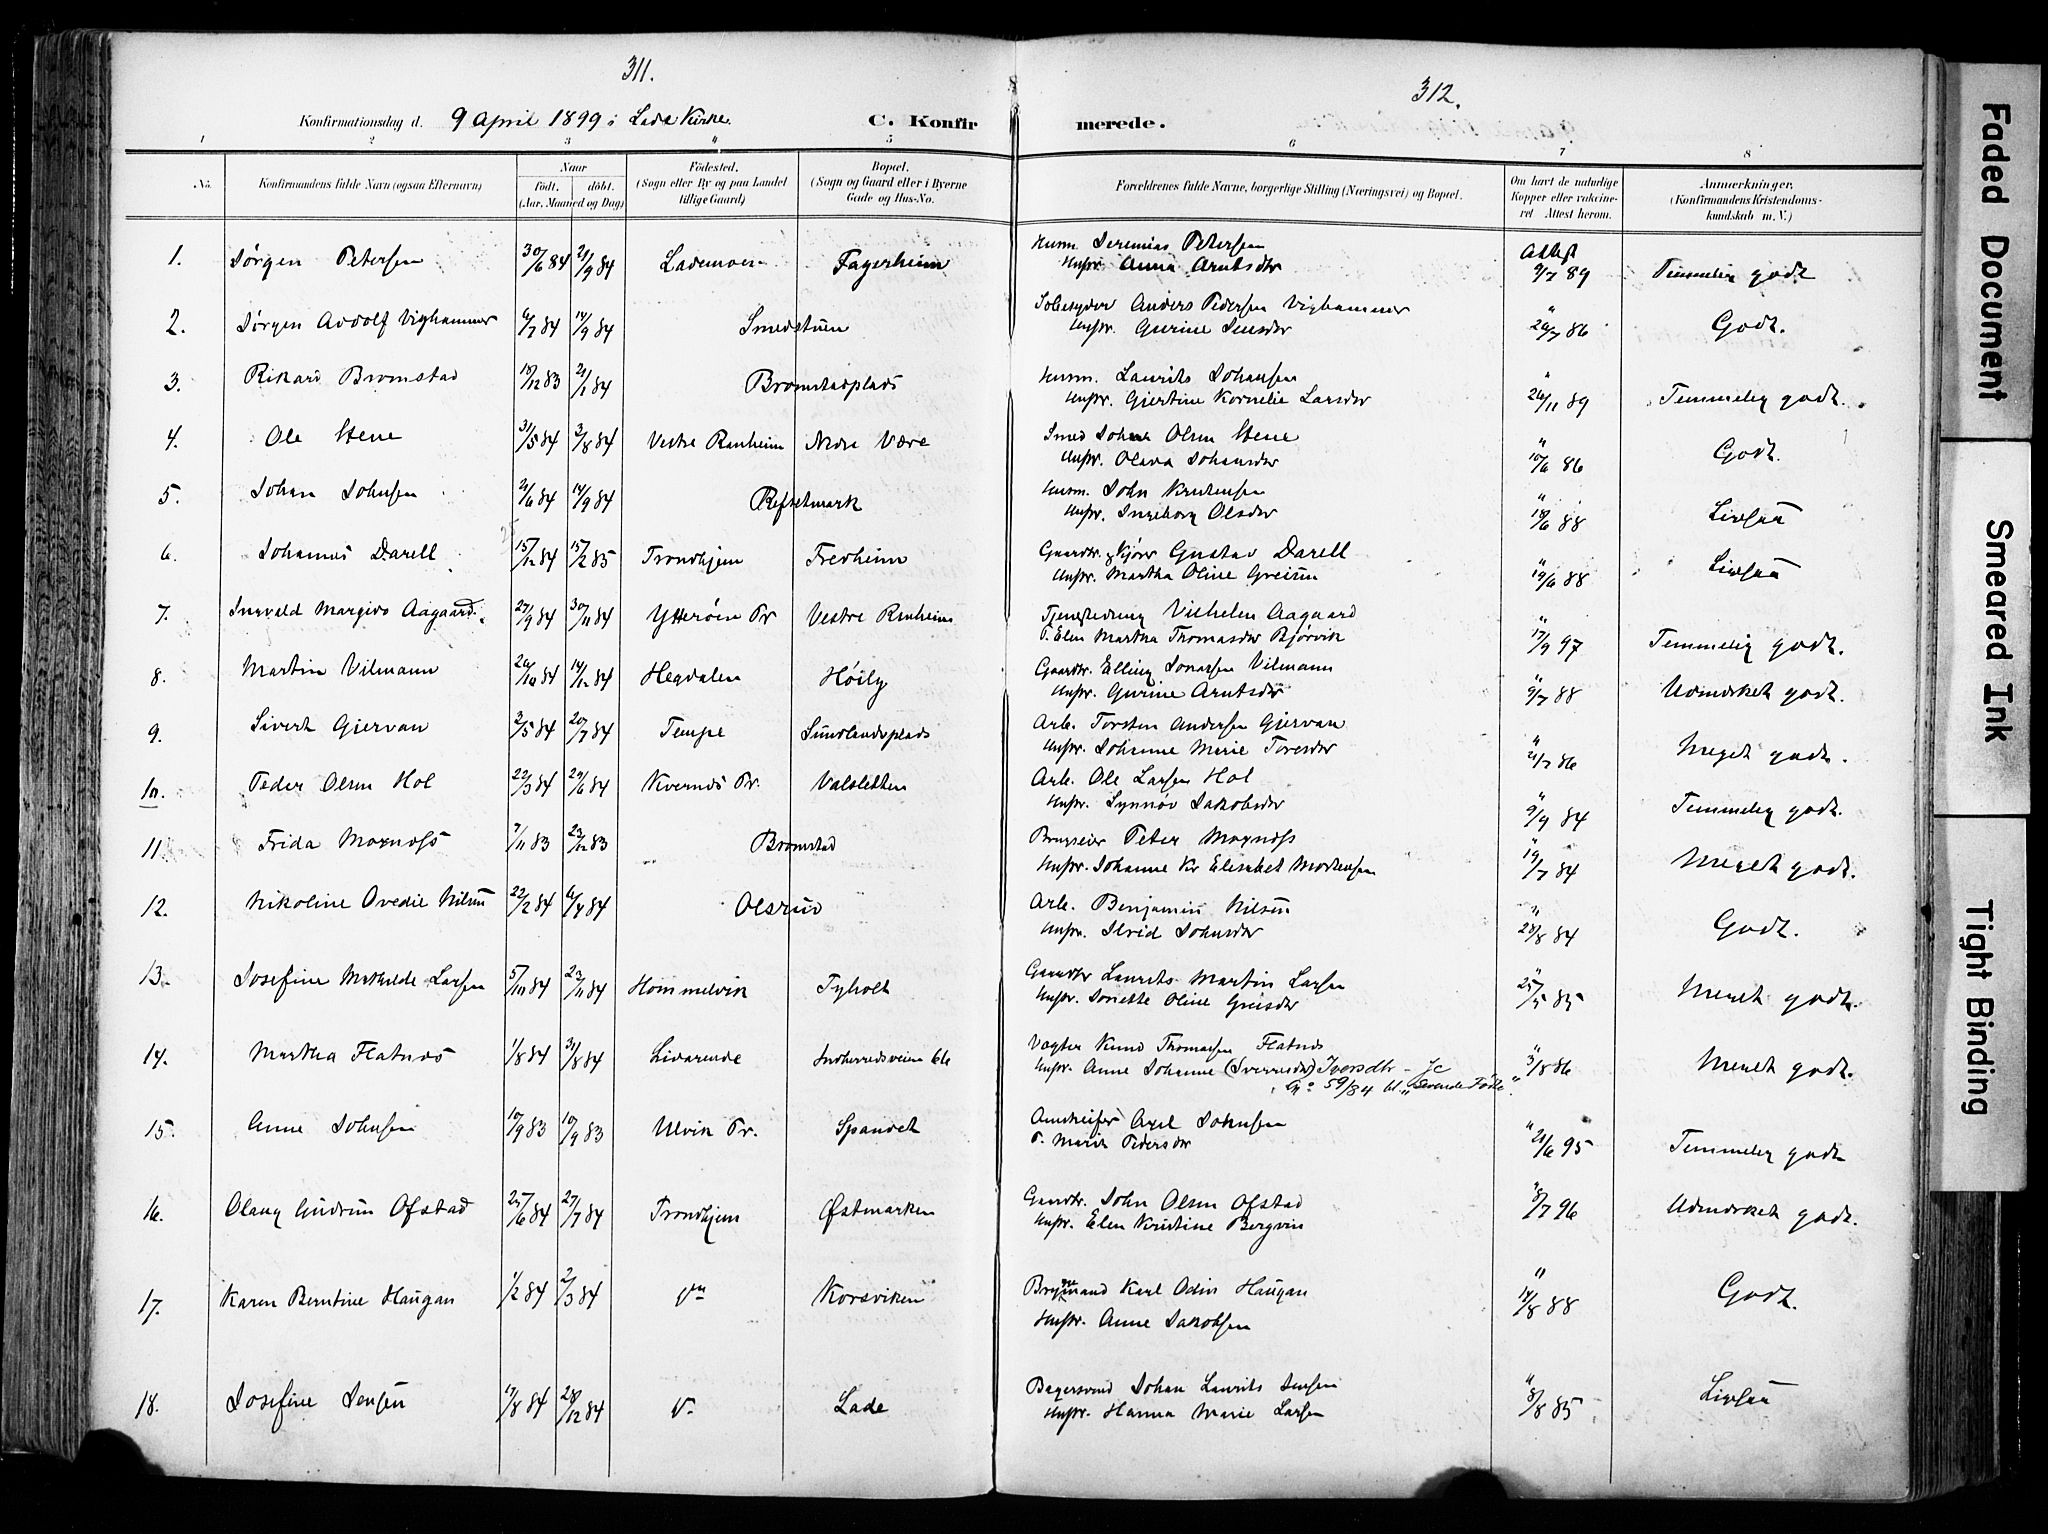 311.
312.
Konfirmationsdag d. 9 April 1899 i Lade Kirke.
C. Konfirmerede.
1 2 3 4 5 6 7 8
No.
Konfirmandens fulde Navn (ogsaa Efternavn)
Naar
født. døbt.
(Aar, Maaned og Dag)
Födested.
(Sogn eller By og paa Landet
tillige Gaard)
Bopæl.
(Sogn og Gaard eller i Byerne
Gade og Hus-No.
Forældrenes fulde Navne, borgerlige Stilling (Næringsvei) og Bopæl.
Om havt de naturlige
Kopper eller vaksine-
ret Attest herom.
Anmærkninger.
(Konfirmandens Kristendoms-
kundskab m. V.)
1. Jørgen Petersen 30/6 84 21/9 84 Lademoen Fagerheim
Husm. Jeremias Petersen
Hustr. Anna Arntsdtr
Attest
9/7 89 Temmelig godt
2. Jørgen Adolf Vighammer 6/7 84 14/9 84 Smedstuen
Anders Pedersen Vighammer
Hustr. Gurine Jensdtr
" 26/7 86 Godt.
3. Rikard Bromstad 18/12 83 2/1 84 Bromstadplads
Husm. Laurits Johansen
Hustr. Gjertine Kornelie Larsdtr
" 26/11 89 Temmelig godt.
4. Ole Stene 31/5 84 3/8 84 Vestre Ranheim Nedre Være
Smed Johan Olsen Stene
Hustr. Olava Johansdtr
" 10/6 86 Godt.
5. Johan Johnsen 21/6 84 14/9 84 Refsetmark
Husm. John Kristensen
Hustr. Ingeborg Olsdtr
" 18/6 88 Livsaa
6. Johannes Darell 15/12 84 15/2 85 Trondhjem Fredheim
Gaardbr. Gustav Darell
Hustr. Martha Oline Greisen
" 19/6 88 Livsaa
7. Ingvald Margido Aagaard. 27/9 84 30/11 84 Ytterøen Pr Vestre Ranheim
Vilhelm Aagaard
P. Elen Martha Thomasdtr Bjørvik
" 17/9 97 Temmelig godt.
8. Martin Vilmann 26/10 84 14/12 84 Hegdalen Høily
Gaardbr. Elling Jonassen Vilmann
Hustr. Gurine Arntsdtr
" 9/7 88 Udmerket godt.
9. Sivert Gjervan 3/5 84 20/7 84 Tempe Sundlandsplads
Arb. Torsten Andersen Gjervan
Hustr. Johanne Marie Toresdtr
" 21/7 86 Meget godt.
10. Peder Olsen Hol 22/3 84 29/6 84 Kvernes Pr. Valsletten
Arb. Ole Larsen Hol
Hustr. Synnøv Jakobsdtr
" 9/9 84 Temmelig godt.
11. Frida Moxness 7/11 83 23/12 83 Bromstad
Brugseier Peter Moxness
Hustr. Johanne Kr Elisabet Mortensen
" 19/7 84 Meget godt.
12. Nikoline Ovedie Nilsen 22/2 84 6/4 84 Olsrud
Arb. Benjamin Nilsen
Hustr. Johnsdtr
" 28/8 84 Godt.
13. Josefine Mathilde Larsen 5/10 84 23/11 84 Hommelvik Tyholt
Gaardbr Laurits Martin Larsen
Hustr. Jonette Oline
" 25/5 85 Meget godt.
14. Martha Flatnes 1/8 84 31/8 84 Livarende Indherredsveien 66
Vogter Knud Thomassen Flatnes
Hustr. Anne Johanne (Iversdtr) Iversdtr -
No 59/84 bl. "Levende Fødte".
" 3/8 86 Meget godt.
15. Anne Johnsen 10/9 83 10/9 83 Ulvik Pr. Spandet
Axel Johnsen
P. Marit Pedersdtr
" 21/6 95 Temmelig godt
16. Olaug Gudrun Ofstad 25/6 84 27/7 84 Trondhjem Østmarken
Gaardbr. John Olsen Ofstad
Hustr. Elen Kristine Bergvin
" 8/7 96 Udmerket godt.
17. Karen Berntine Haugan 1/2 84 2/3 84 Korsviken
Karl Odin Haugan
Hustr. Anne Jakobsen
" 12/8 88 Godt.
18. Josefine Jensen 17/8 84 28/12 84 Lade
Bagersvend Johan Laurits Jensen
Hustr. Hanna Marie Larsen
" 8/8 85 Livsaa
Faded Document
Smeared Ink
Tight Binding